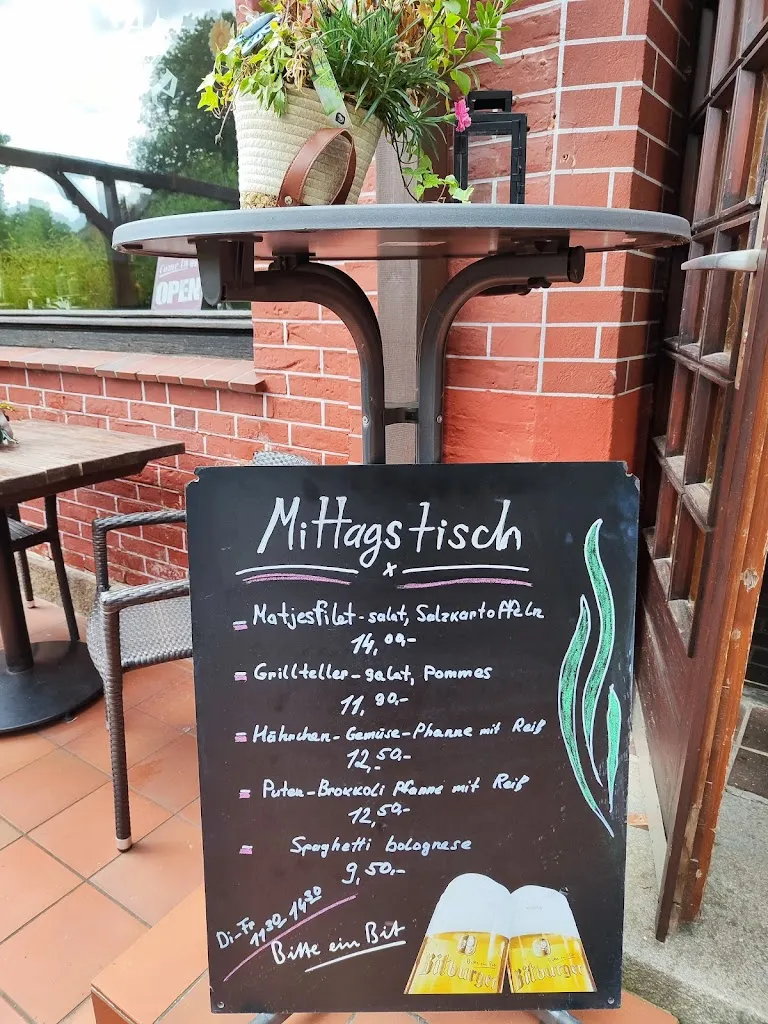 Come in we're
OPEN
Mittagstisch
x
Matjesfilet-salat, Salzkartoffeln
14,00-
Grillteller-salat, Pommes
11,90-
Hähnchen-Gemüse-Phanne mit Reiß
12,50-
Puten-Brokkoli Pfanne mit Reiß
12,50-
Spaghetti bolognese
9,50.-
Di-Fr
11 30 14 30
Bitte ein Bit
Bitburger Bitburger